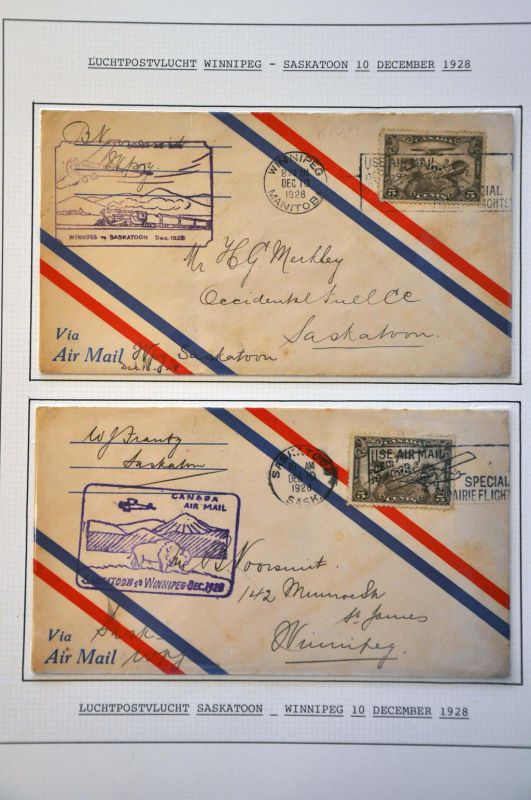 LUCHTPOSTVLUCHT WINNIPEG - SASKATOON 10 DECEMBER 1928
WINNIPEG TO SASKATOON Dec. 1928
WINNIPEG
DEC 10
1928
MANITOBA
USE AIR MAIL
SPECIAL
FLIGHTS
5 CENTS 5
Mr H.G. Merkley
Occidental Fuel Co
Saskatoon.
Via
Air Mail
Saskatoon
W J Frantz
Saskatoon
CANADA
AIR MAIL
SASKATOON TO WINNIPEG-DEC. 1928
SASKATOON
10 AM
DEC 10
1928
SASK.
USE AIR MAIL
SPECIAL
PRAIRIE FLIGHT
5 CENTS 5
142 Munroe St
St James
Winnipeg.
Via Sask-
Air Mail WPG
LUCHTPOSTVLUCHT SASKATOON _ WINNIPEG 10 DECEMBER 1928